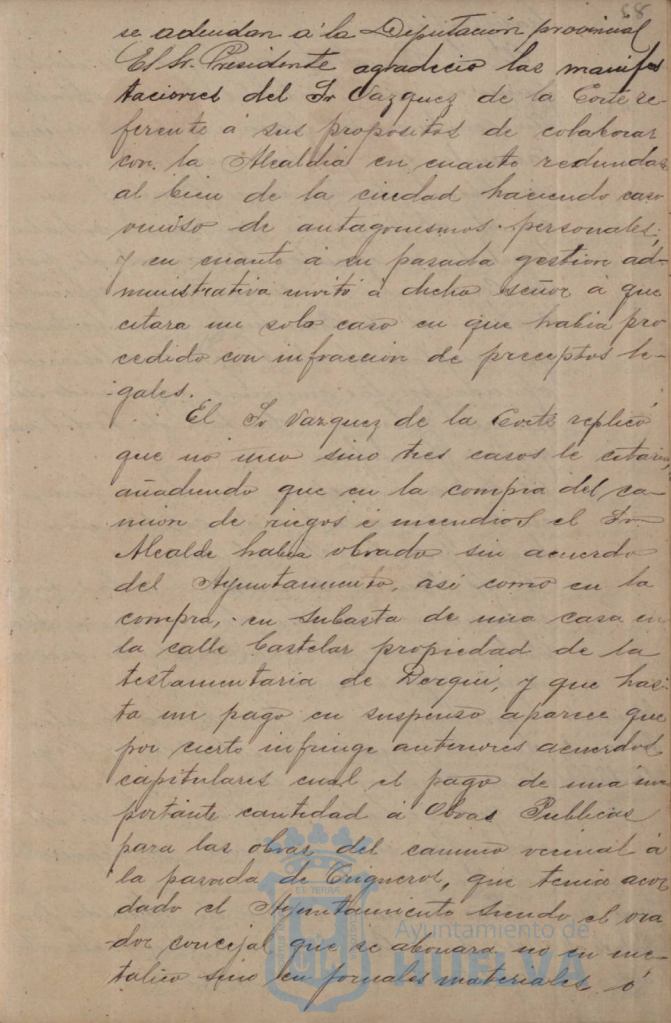 68
se adeudan á la Diputación provincial
El Sr. Presidente agradeció las manifes
taciones del Sr Vazquez de la Corte re-
ferente á sus propositos de colaborar
con la Alcaldia en cuanto redundas
al bien de la ciudad haciendo caso
omiso de antagonismos personales,
y en cuanto á su pasada gestion ad-
ministrativa invitó á dicho señor á que
citara un solo caso en que habia pro
cedido con infraccion de preceptos le-
gales.
El Sr Vazquez de la Corte replicó
que no uno sino tres casos le citaria,
añadiendo que en la compra del ca-
mion de riegos é incendios el Sr.
Alcalde habia obrado sin acuerdo
del Ayuntamiento, asi como en la
compra, en subasta de una casa en
la calle Castelar propiedad de la
testamentaria de Dergui, y que has
ta un pago en suspenso aparece que
por cierto infringe anteriores acuerdos
capitulares cual el pago de una im
portante cantidad á Obras Publicas
para las obras del camino vecinal á
la parada de, que tenia acor
dado el Ayuntamiento siendo el ora
dor concejal que se abonara no en me-
talico sino en jornales materiales ó
Ayuntamiento de
HUELVA